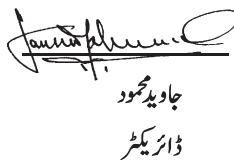 جاوید محمود
ڈائریکٹر